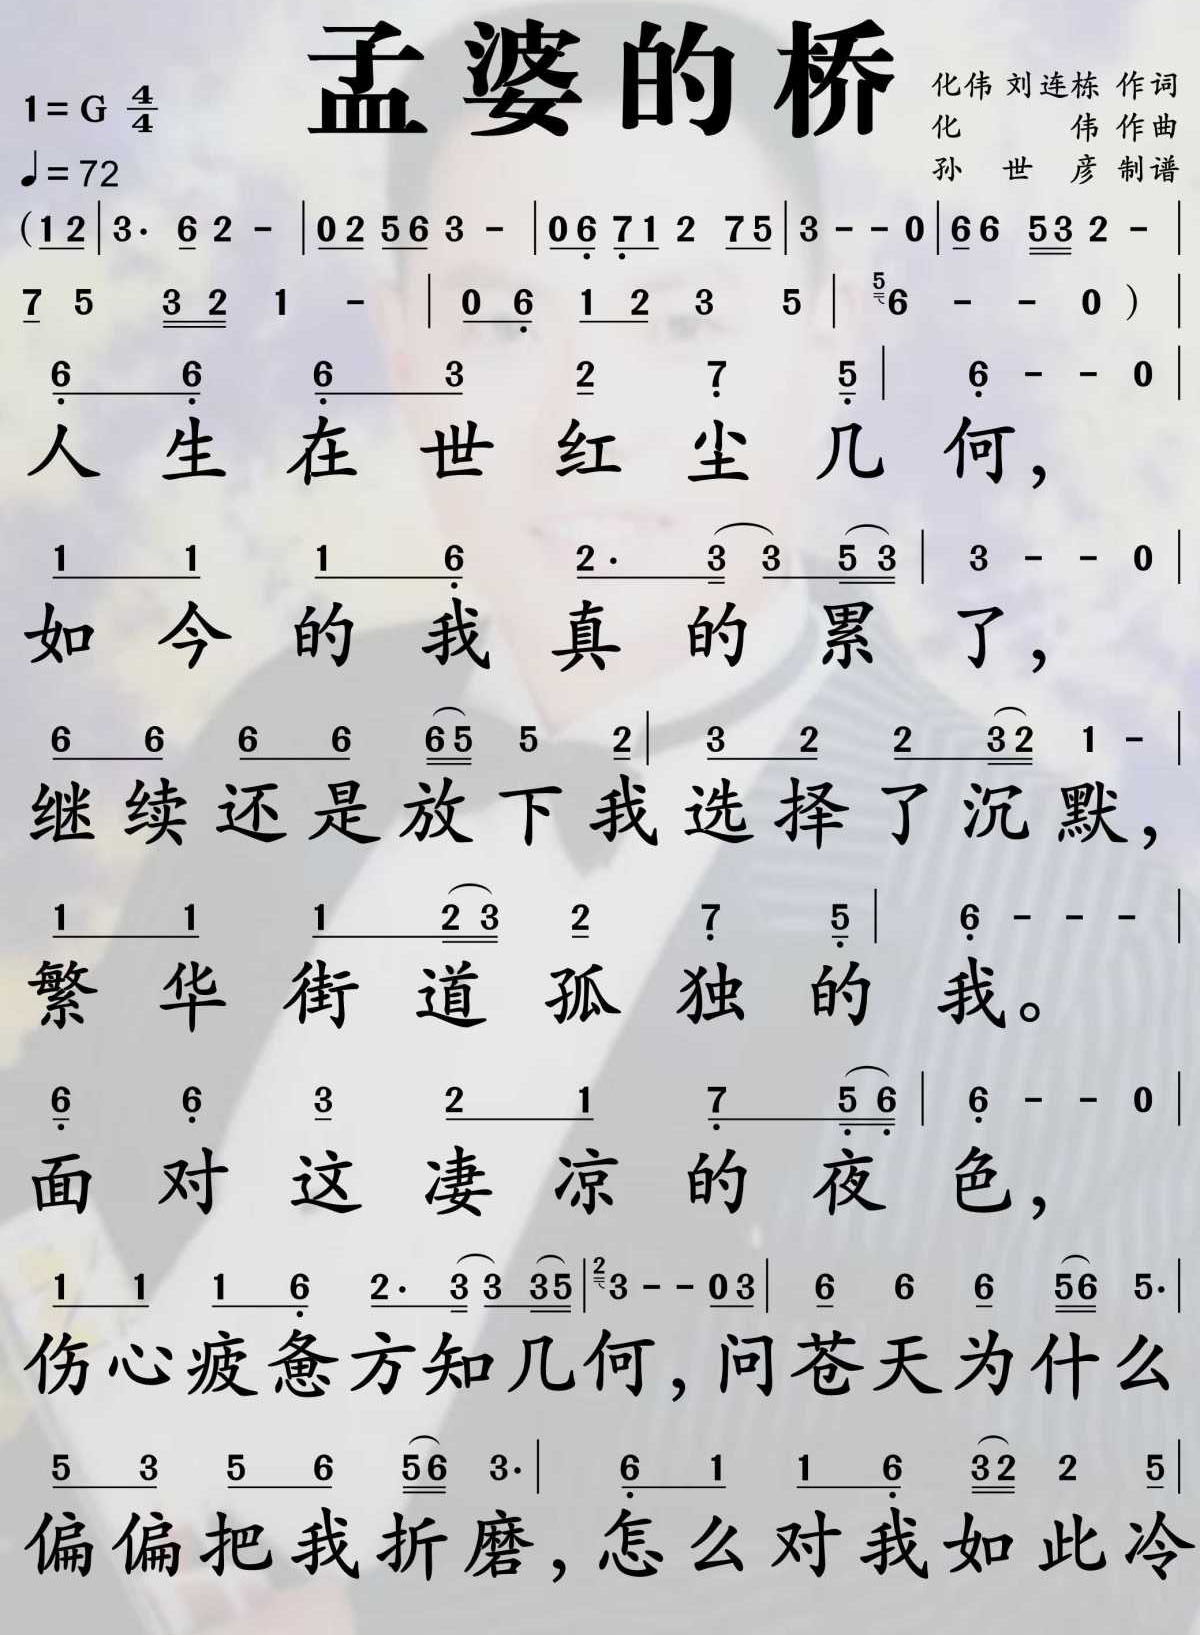 孟婆的桥
1=G 4/4
♩=72
化伟 刘连栋 作词
化 伟 作曲
孙 世 彦 制谱
(1 2 | 3· 6 2 - | 0 2 5 6 3 - | 0 6 7 1 2 7 5 | 3 - - 0 | 6 6 5 3 2 - |
7 5 3 2 1 - | 0 6 1 2 3 5 | 5 6 - - 0 ) |
6 6 6 3 2 7 5 | 6 - - 0 |
人生在世红尘几何，
1 1 1 6 2· 3 3 5 3 | 3 - - 0 |
如今的我真的累了，
6 6 6 6 6 5 5 2 | 3 2 2 3 2 1 - |
继续还是放下我选择了沉默，
1 1 1 2 3 2 7 5 | 6 - - - |
繁华街道孤独的我。
6 6 3 2 1 7 5 6 | 6 - - 0 |
面对这凄凉的夜色，
1 1 1 6 2· 3 3 3 5 | 2 3 - - 0 3 | 6 6 6 5 6 5· |
伤心疲惫方知几何，问苍天为什么
5 3 5 6 5 6 3· | 6 1 1 6 3 2 2 5 |
偏偏把我折磨，怎么对我如此冷